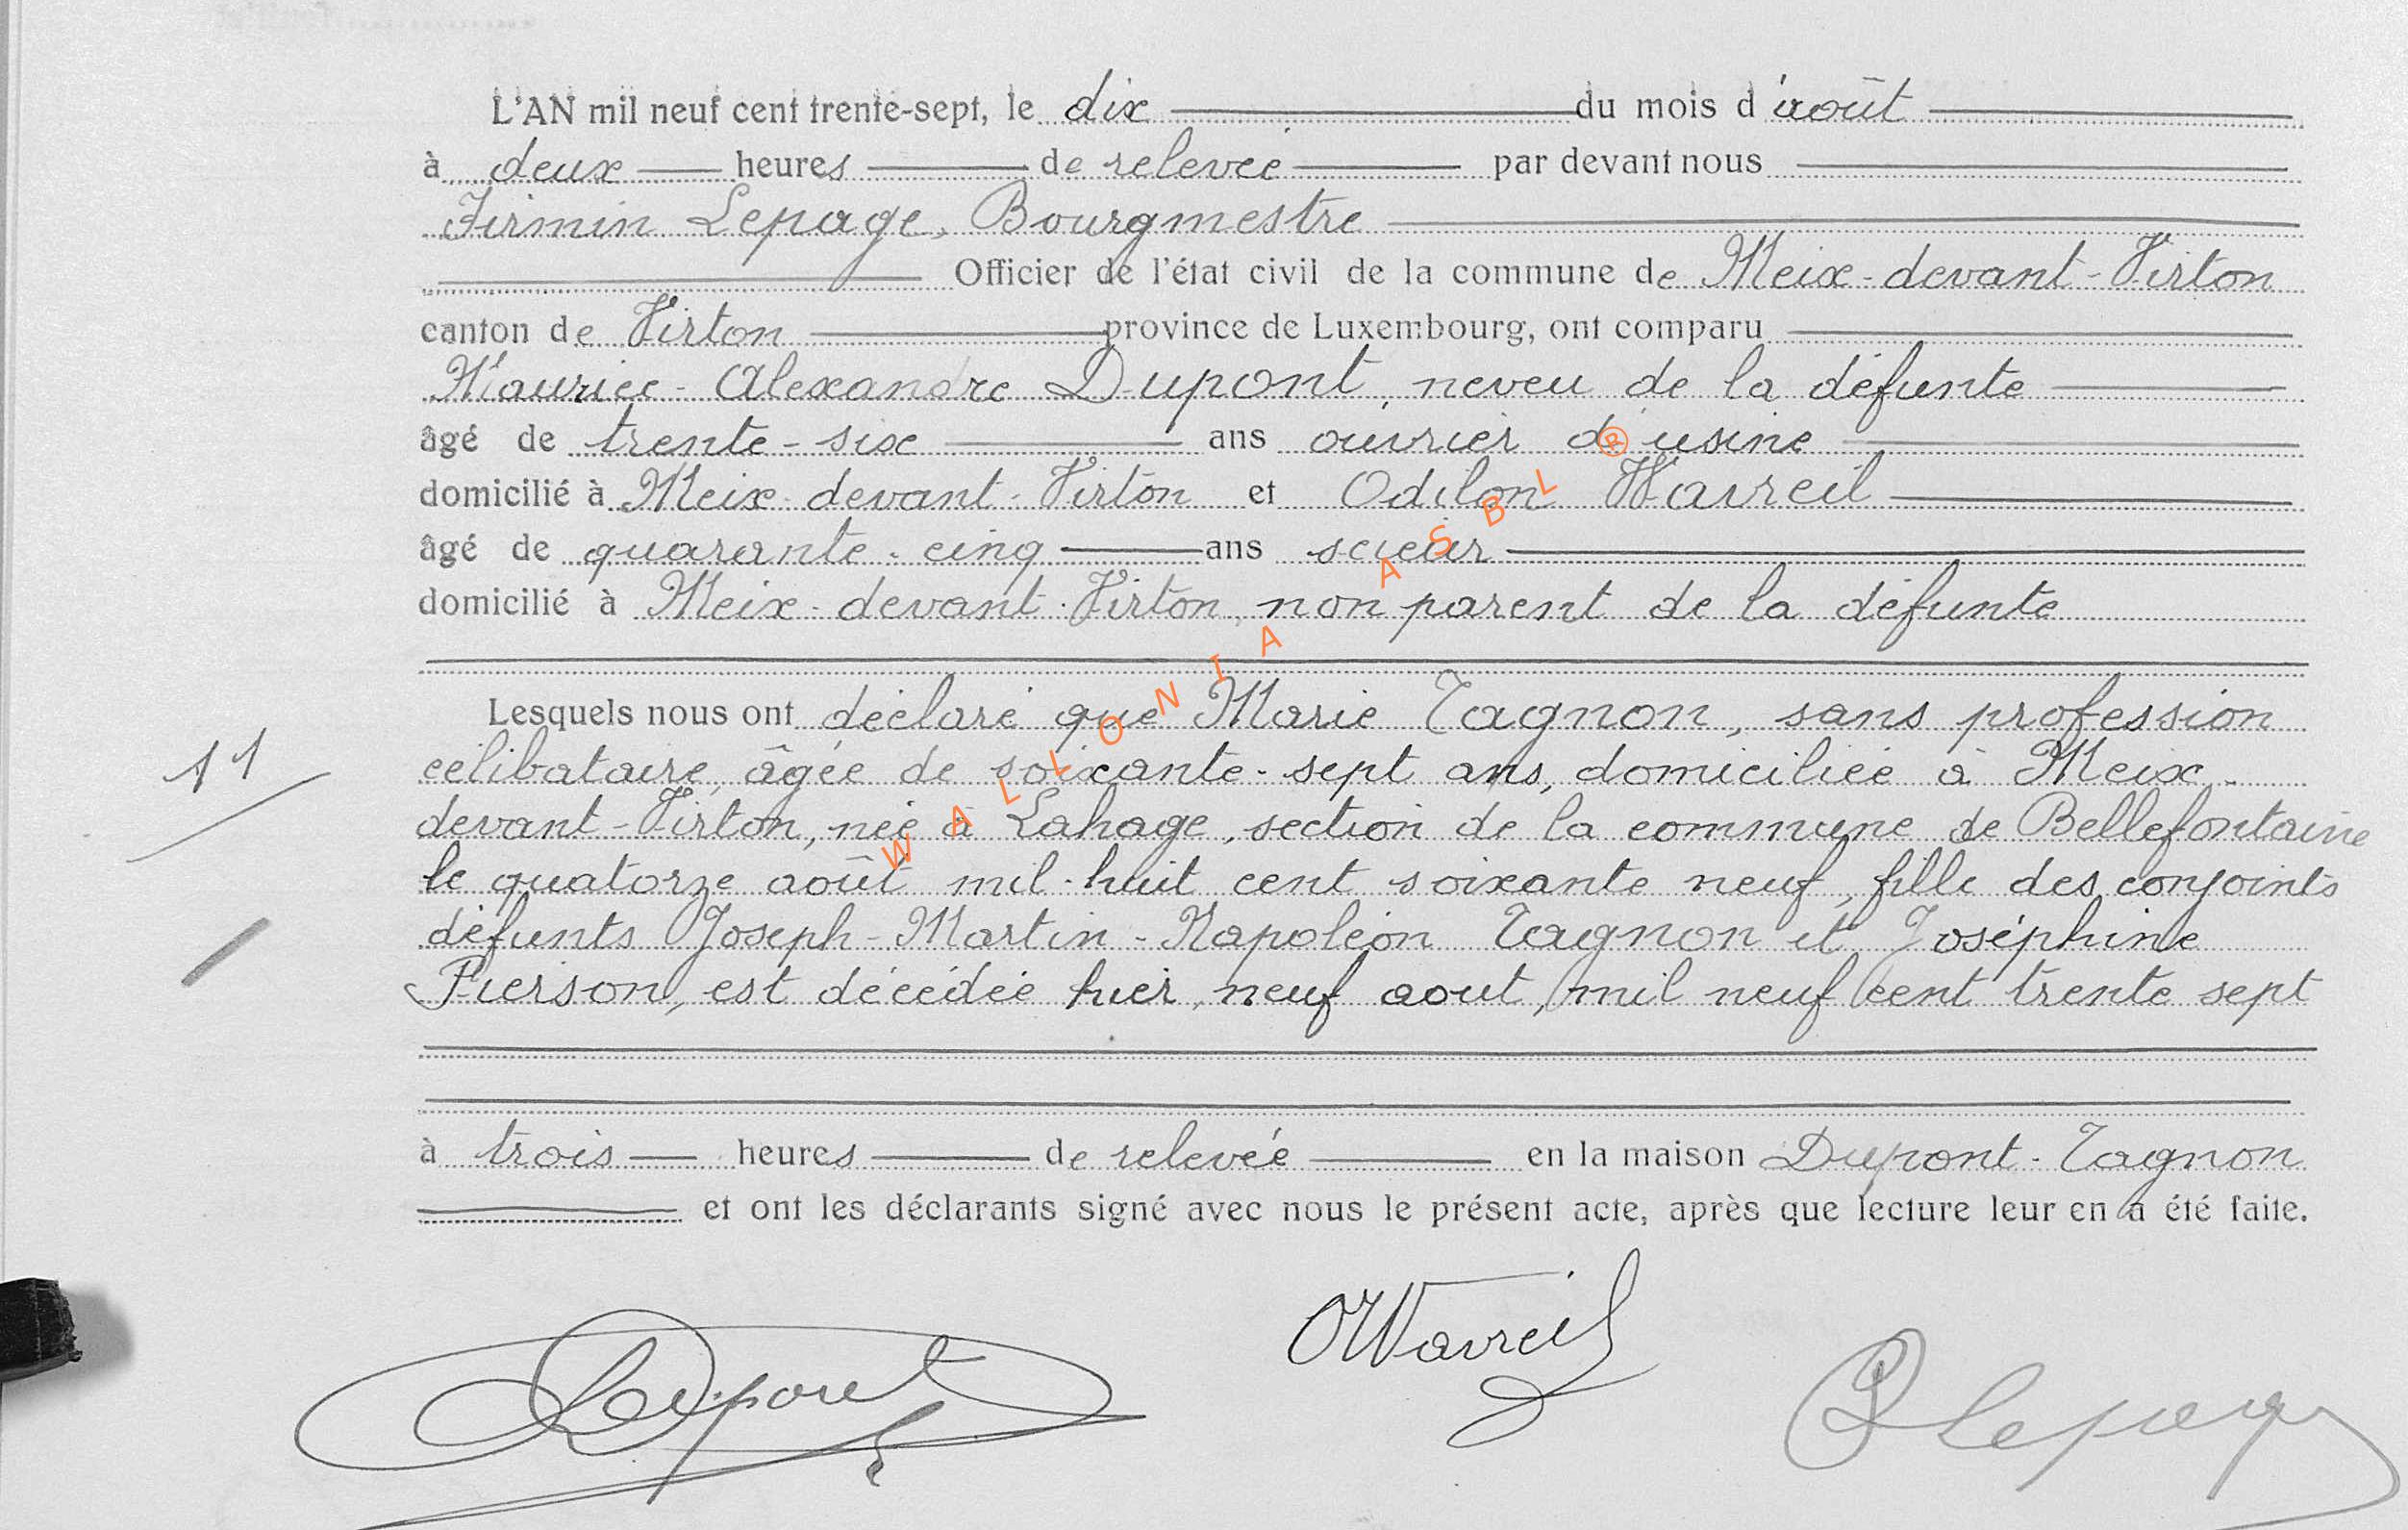 L'AN mil neuf cent trente-sept, le dix du mois d'août
à deux heures de relevée par devant nous
Firmin Lepage, Bourgmestre
Officier de l'état civil de la commune de Meix-devant-Virton
canton de Virton province de Luxembourg, ont comparu
Maurice-Alexandre Dupont, neveu de la défunte
âgé de trente-six ans ouvrier d'usine
domicilié à Meix-devant-Virton et Odilon Wavreil
âgé de quarante-cinq ans scieur
domicilié à Meix-devant-Virton, non parent de la défunte
Lesquels nous ont déclaré que Marie Tagnon, sans profession
11
célibataire, âgée de soixante-sept ans, domiciliée à Meix-
devant-Virton, née à Lahage, section de la commune de Bellefontaine
le quatorze août mil-huit cent soixante neuf, fille des conjoints
défunts Joseph-Martin-Napoléon Tagnon et Joséphine
Pierson, est décédée hier, neuf aout, mil neuf cent trente sept
à trois heures de relevée en la maison Dupont-Tagnon
et ont les déclarants signé avec nous le présent acte, après que lecture leur en a été faite.
Dupont
OWavreil
Lepage
WALLONIA ASBL ®